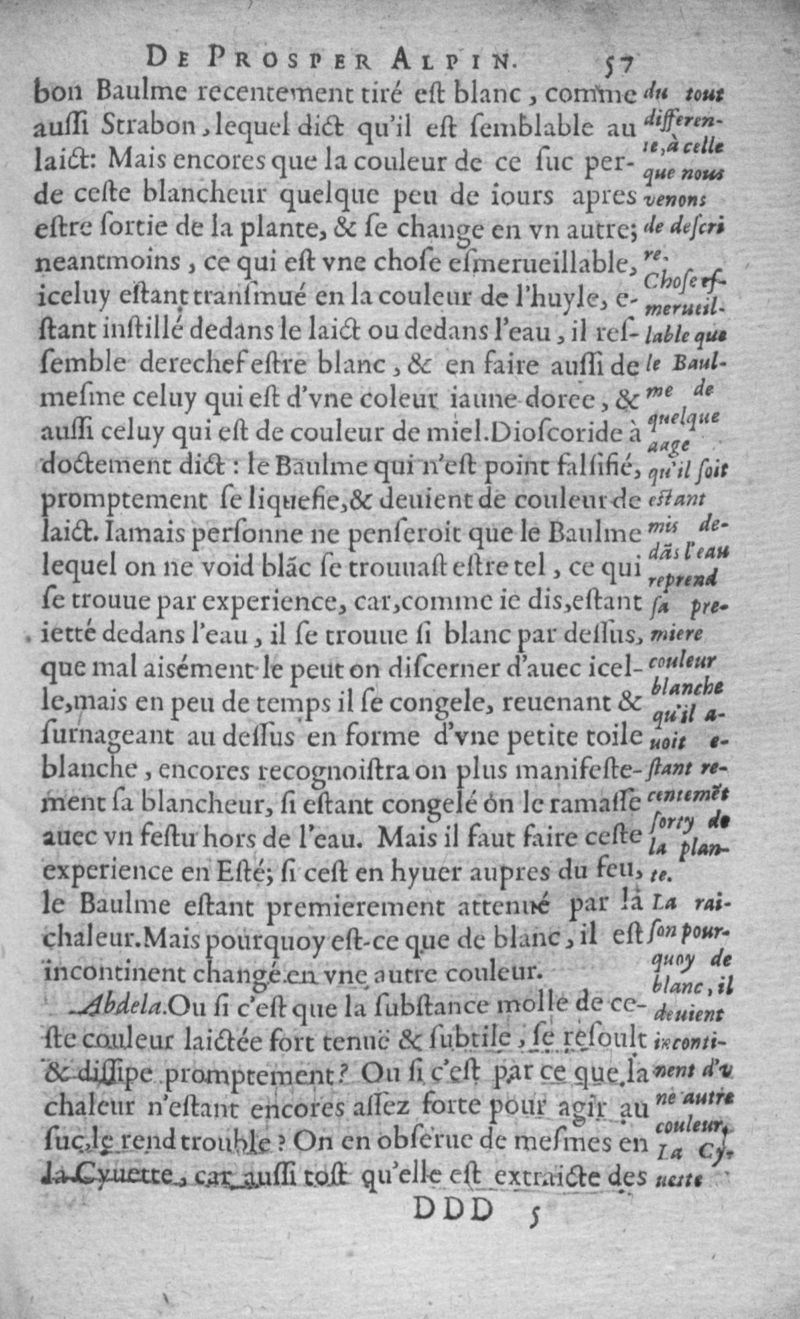 DE PROSPER ALPIN. 57
bon Baulme recentement tiré eſt blanc, comme
auſſi Strabon, lequel dict qu'il eſt ſemblable au
laict: Mais encores que la couleur de ce ſuc per-
de ceſte blancheur quelque peu de iours apres
eſtre ſortie de la plante, & ſe change en vn autre;
neantmoins, ce qui eſt vne choſe eſmerueillable,
iceluy eſtant tranſmué en la couleur de l'huyle, e-
ſtant inſtillé dedans le laict ou dedans l'eau, il reſ-
ſemble derechef eſtre blanc, & en faire auſſi de
meſme celuy qui eſt d'vne coleur iaune doree, &
auſſi celuy qui eſt de couleur de miel. Dioſcoride à
doctement dict : le Baulme qui n'eſt point falſifié,
promptement ſe liquefie, & deuient de couleur de
laict. Iamais perſonne ne penſeroit que le Baulme
lequel on ne void blãc ſe trouuaſt eſtre tel, ce qui
ſe trouue par experience, car, comme ie dis, eſtant
ietté dedans l'eau, il ſe trouue ſi blanc par deſſus,
que mal aisément le peut on diſcerner d'auec icel-
le, mais en peu de temps il ſe congele, reuenant &
ſurnageant au deſſus en forme d'vne petite toile
blanche, encores recognoiſtra on plus manifeſte-
ment ſa blancheur, ſi eſtant congelé on le ramaſſe
auec vn feſtu hors de l'eau. Mais il faut faire ceſte
experience en Eſté; ſi ceſt en hyuer aupres du feu,
le Baulme eſtant premierement attenué par la
chaleur. Mais pourquoy eſt-ce que de blanc, il eſt
incontinent changé en vne autre couleur.
Abdela. Ou ſi c'eſt que la ſubſtance molle de ce-
ſte couleur laictée fort tenuë & ſubtile, ſe reſoult
& diſſipe promptement? Ou ſi c'eſt par ce que la
chaleur n'eſtant encores aſſez forte pour agir au
ſuc, le rend trouble? On en obſerue de meſmes en
la Cyuette, car auſſi toſt qu'elle eſt extraicte des
DDD 5
du tout
differen-
te, à celle
que nous
venons
de deſcri
re.
Choſe eſ-
merueil-
lable que
le Baul-
me de
quelque
aage
qu'il ſoit
eſtant
mis de-
dãs l'eau
reprend
ſa pre-
miere
couleur
blanche
qu'il a-
uoit e-
ſtant re-
centemẽt
ſorty de
la plan-
te.
La rai-
ſon pour-
quoy de
blanc, il
deuient
inconti-
nent d'v
ne autre
couleur.
La Cy-
uette